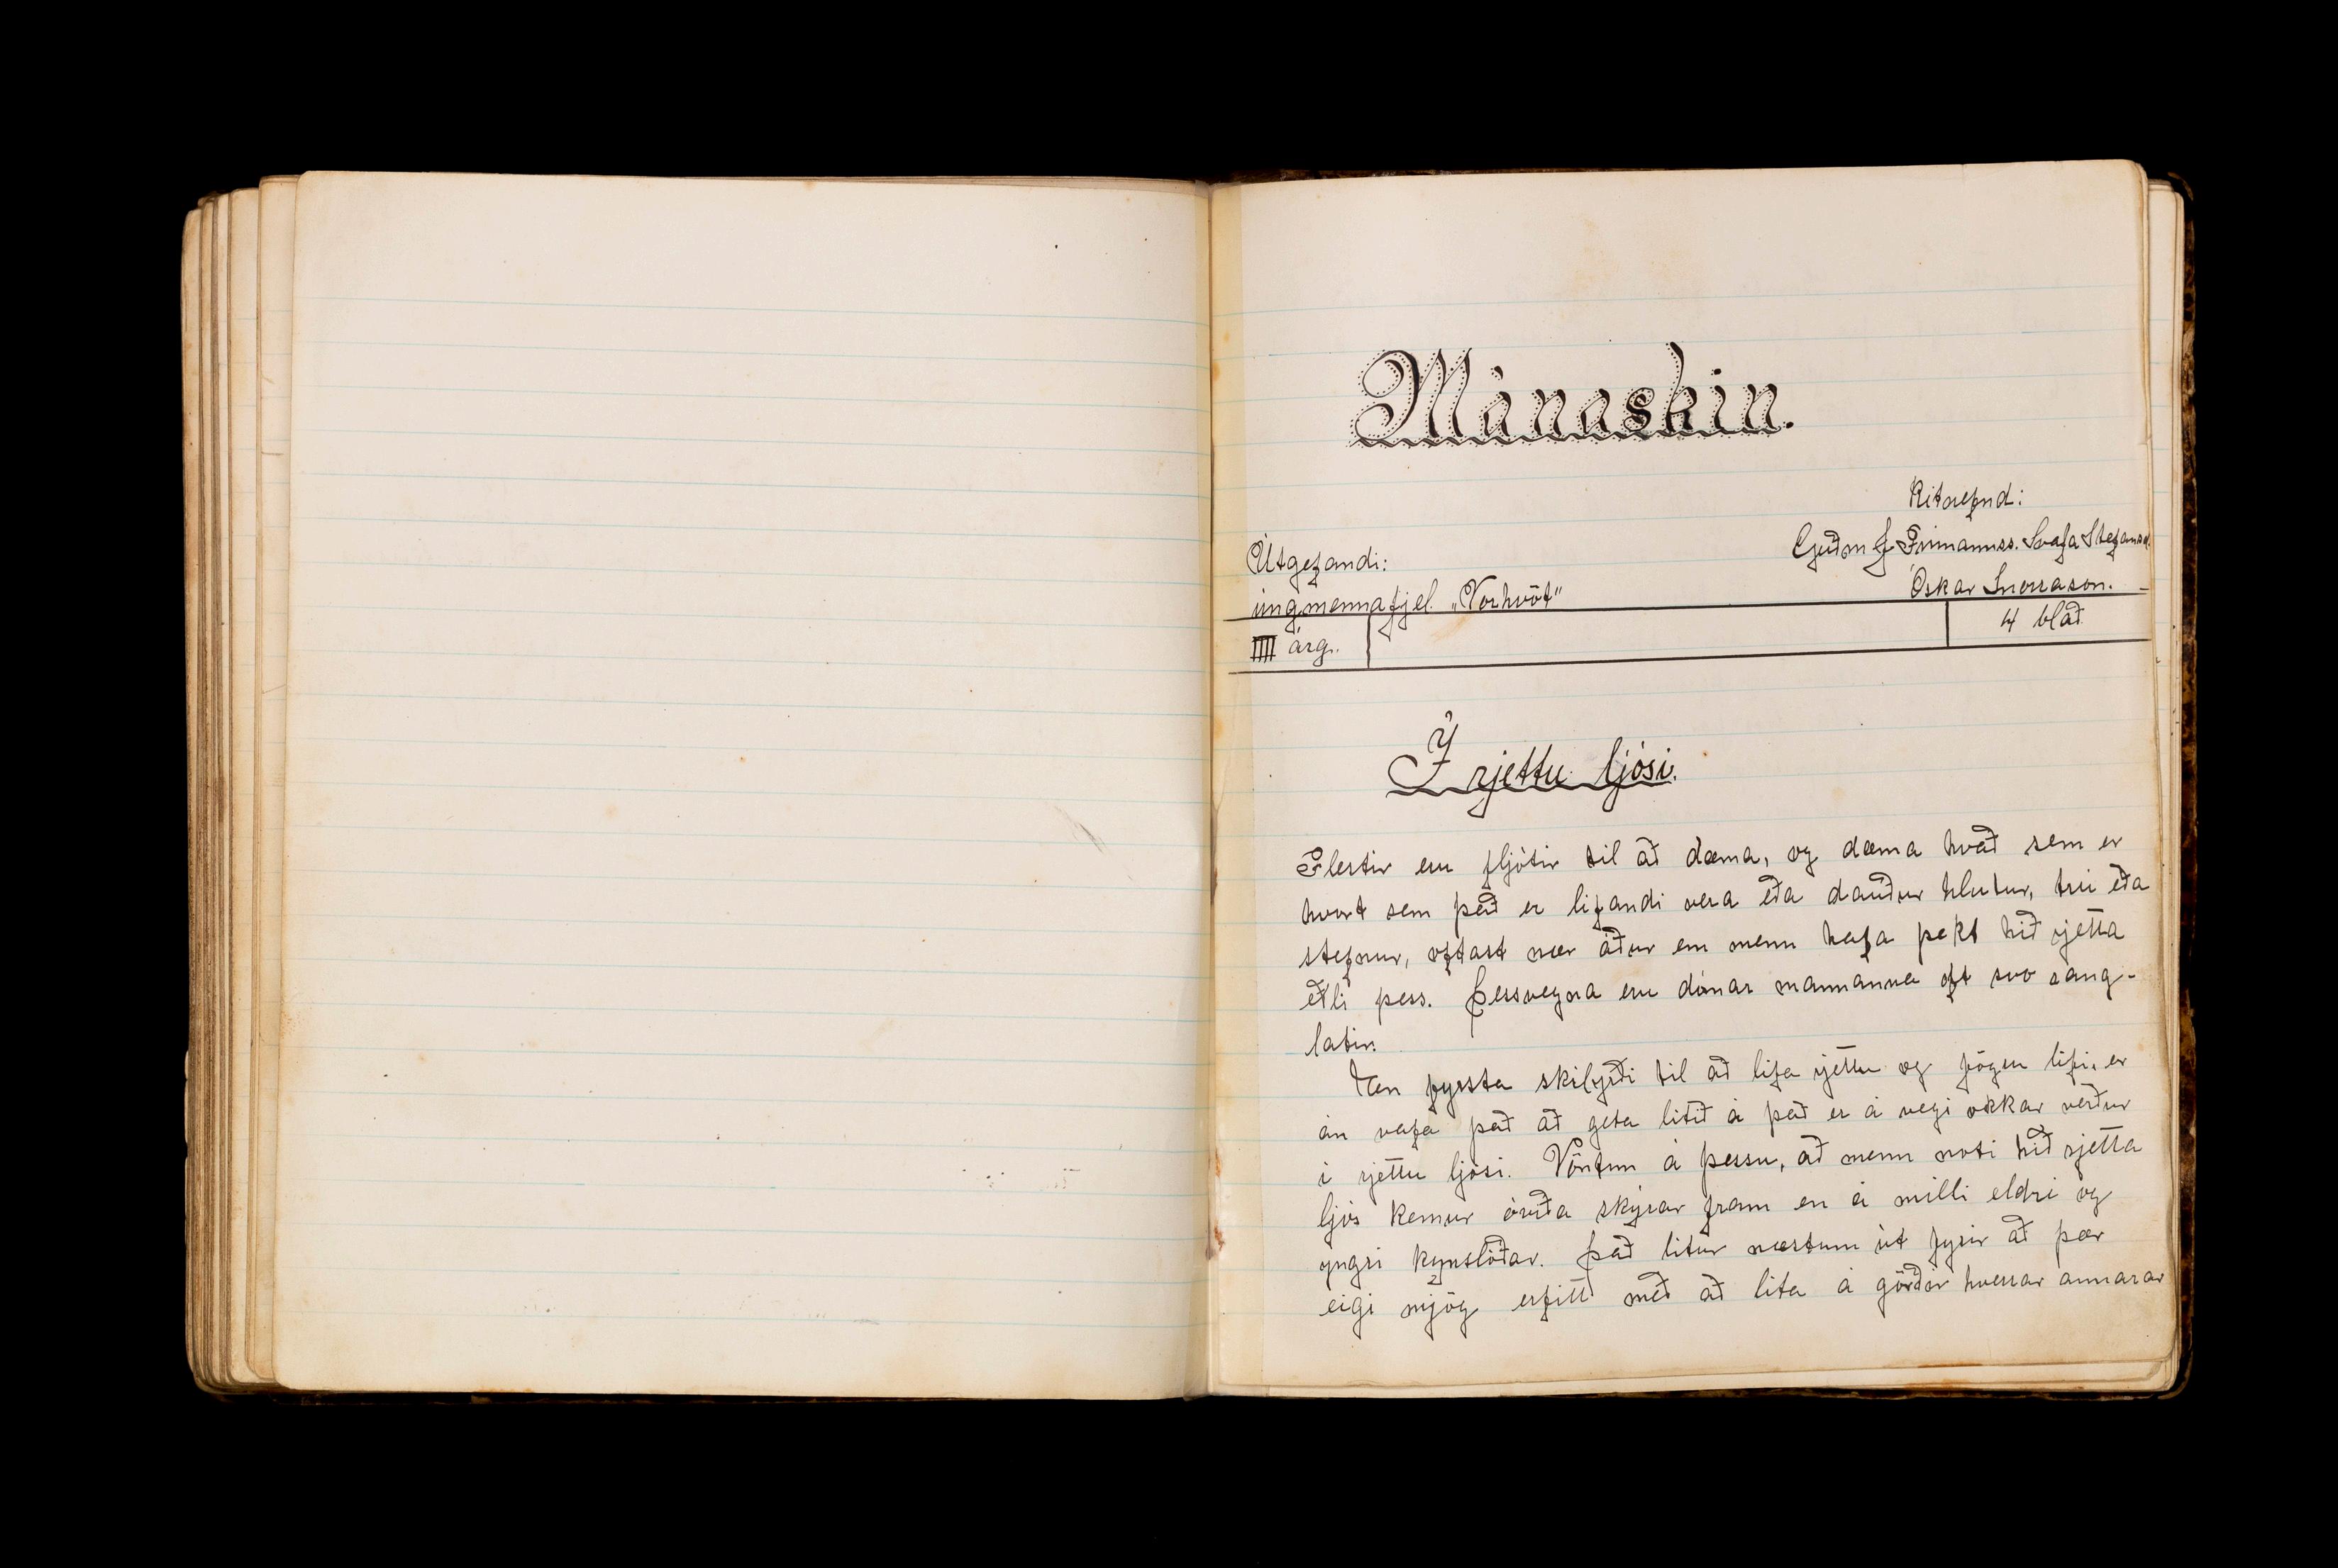 Mánaskin.
Ritnefnd:
Útgefandi:
Guðm J Frímannss. Svafa Stefansd.
ungmennafjel. „Vorhvöt"
Óskar Snorrason.
IIII árg.
4 blað
Í rjettu ljósi.
Flestir eru fljótir til að dæma, og dæma hvað sem er
hvort sem það er lifandi vera eða dauður hlutur, trú eða
stefnur, oftast nær áður em menn hafa þekt hið rjetta
eðli þess. Þessvegna eru dómar mannanna oft svo rang-
látir.
En fyrsta skilyrði til að lifa rjettu og fögru lífi, er
án vafa það að geta litið á það er á vegi okkar verður
í rjettu ljósi. Vöntun á þessu, að menn noti hið rjetta
ljós kemur óvíða skýrar fram en á milli eldri og
yngri kynslóðar. Það lítur næstum út fyrir að þær
eigi mjög erfitt með að líta á görðir hverrar annarar